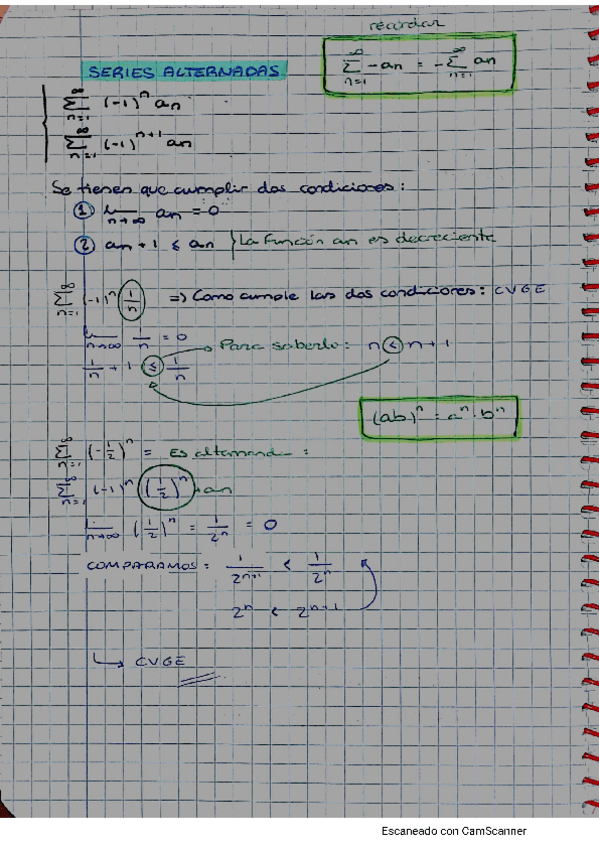 recordar
∞
Σ -an = - Σ an
n=1 n=1
SERIES ALTERNADAS
Σ (-1)^n an
n=1
Σ (-1)^n+1 an
n=1
Se tienen que cumplir dos condiciones:
① lim an = 0
n→∞
② an+1 ≤ an } La función an es decreciente
Σ (-1)^n (1/n) => Como cumple las dos condiciones: CVGE
n=1
lim 1/n = 0
n→∞
1/n + 1 ≤ 1/n → Para saberlo: n ≤ n+1
(ab)^n = a^n · b^n
Σ (-1/2)^n = Es alternand :
n=1
Σ (-1)^n (1/2)^n an
n=1
lim (1/2)^n = 1/2^n = 0
n→∞
COMPARAMOS: 1/2^n+1 < 1/2^n
2^n < 2^n+1
↳ CVGE
Escaneado con CamScanner